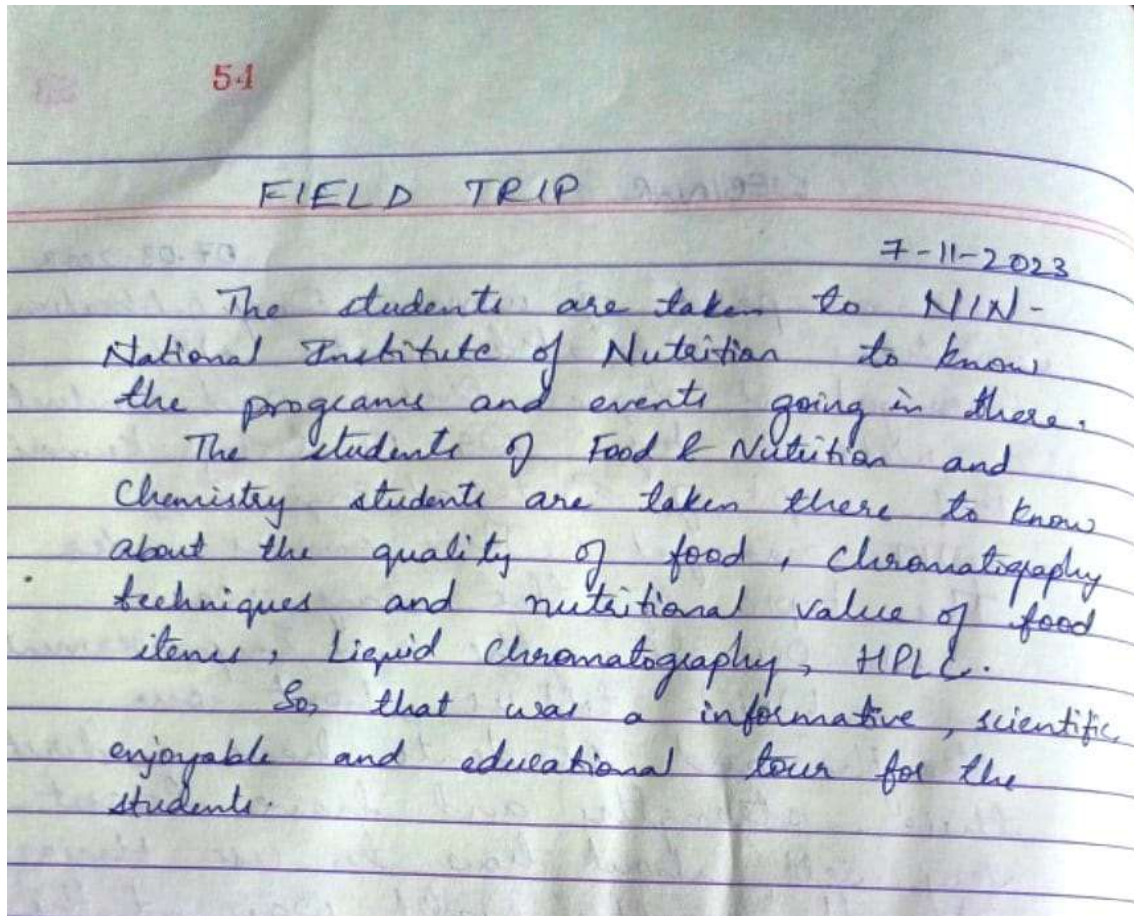 54
FIELD TRIP
7-11-2023
The students are taken to NIN-
National Institute of Nutrition to know
the programs and events going in there.
The students of Food & Nutrition and
Chemistry students are taken there to know
about the quality of food, Chromatography
techniques and nutritional value of food
items, Liquid Chromatography, HPLC.
So, that was a informative, scientific,
enjoyable and educational tour for the
students.